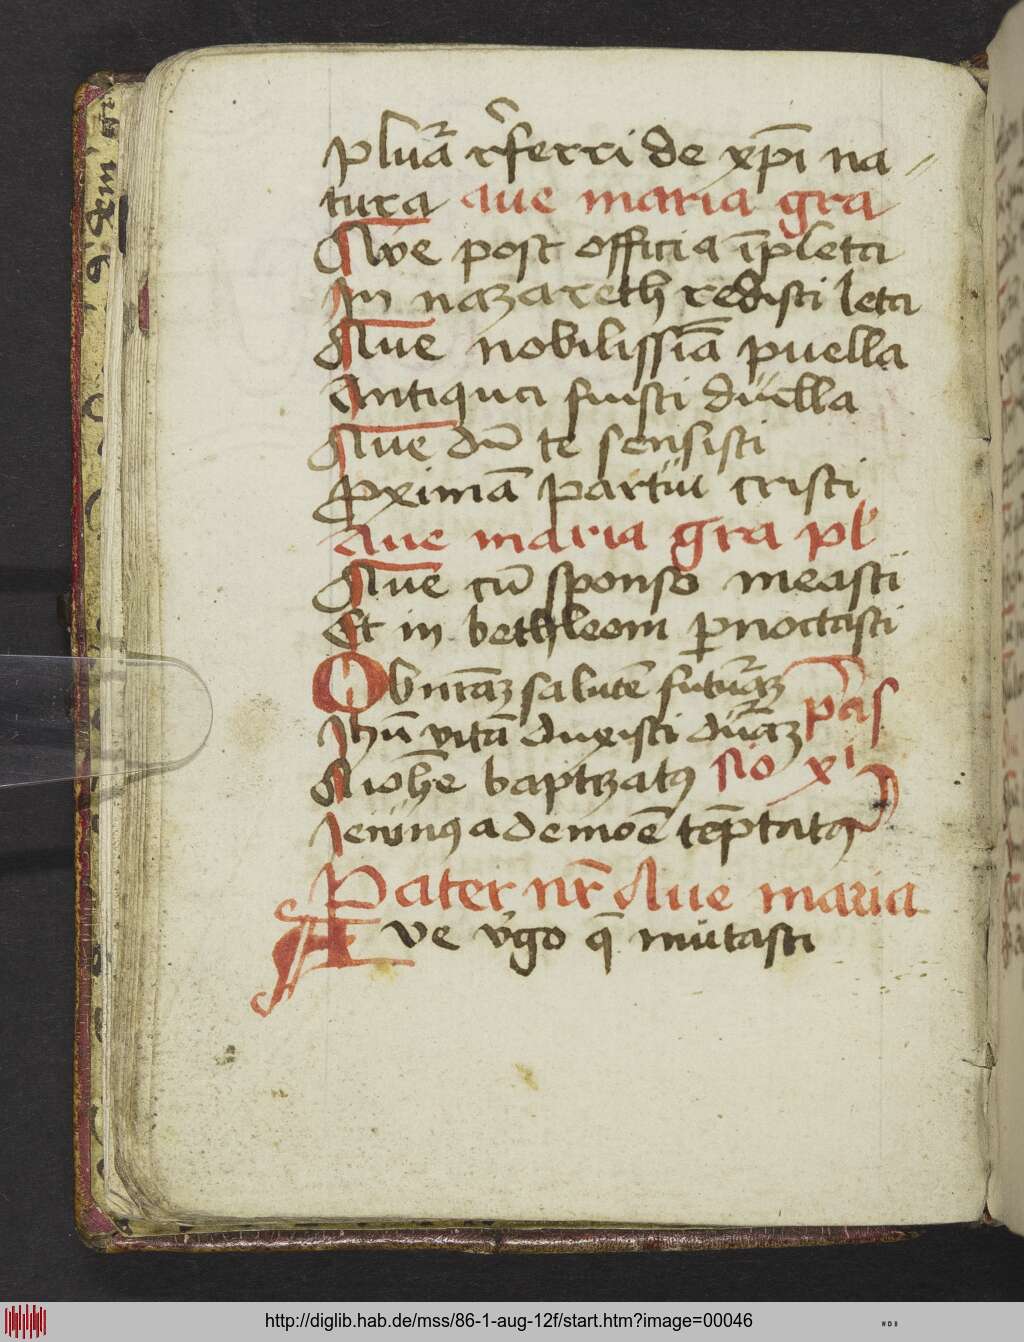 plura r̾ferri de xp̄i na
tura aue maria gra
Awe post officia īpleta
In nazareth redisti leta
Aue nobilissīa puella
Antiqua fuisti duella
Aue dū te sensisti
ꝓximā partui cristi
Aue maria gra pl
Aue cū sponso measti
Et in bethleem ꝑnoctasti
Ob nr̄aʒ salutē futuraʒ
Ihū vitā duxisti duraʒ pas
A iohe baptʒatꝰ sio xi
Ieiunꝰ a demoē tēptatꝰ
Pater nr̄ Aue maria
AVe v̾go q̄ mutasti
http://diglib.hab.de/mss/86-1-aug-12f/start.htm?image=00046